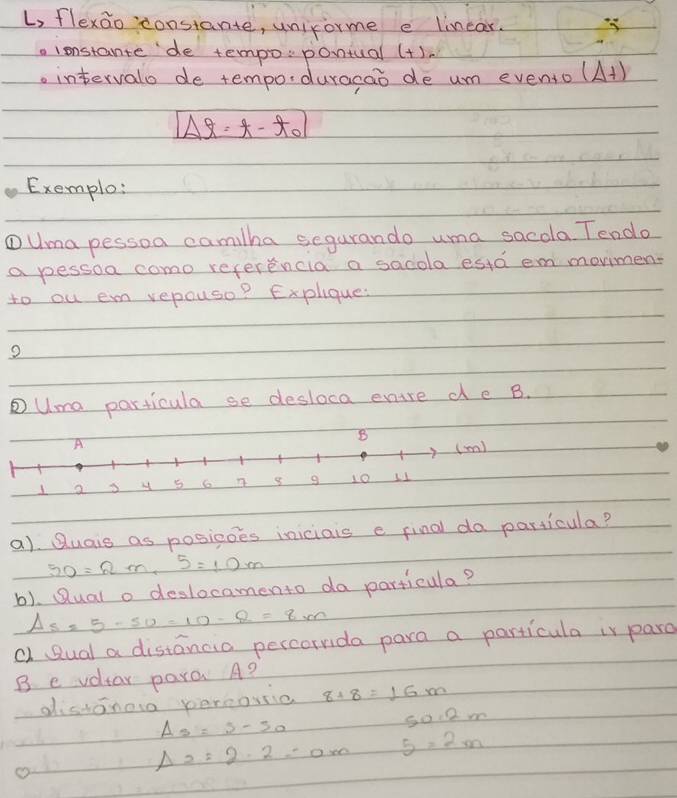 ↳ flexão constante, uniforme e linear.
• instante de tempo: pontual (t).
• intervalo de tempo: duração de um evento (Δt)
Δt = t - t0
Exemplo:
① Uma pessoa camilha segurando uma sacola. Tendo
a pessoa como referência a sacola está em movimen-
to ou em repouso? Explique:
② Uma partícula se desloca entre d e B.
A B
1 2 3 4 5 6 7 8 9 10 11 (m)
a). Quais as posições iniciais e final da partícula?
S0 = 2 m. S = 10 m
b). Qual o deslocamento da partícula?
Δs = S - S0 = 10 - 2 = 8m
c) Qual a distância percorrida para a partícula ir para
B e voltar para A?
distância percorria 8+8 = 16 m
Δs = S - S0 S0 = 2m
Δs = 2 - 2 = 0m S = 2m